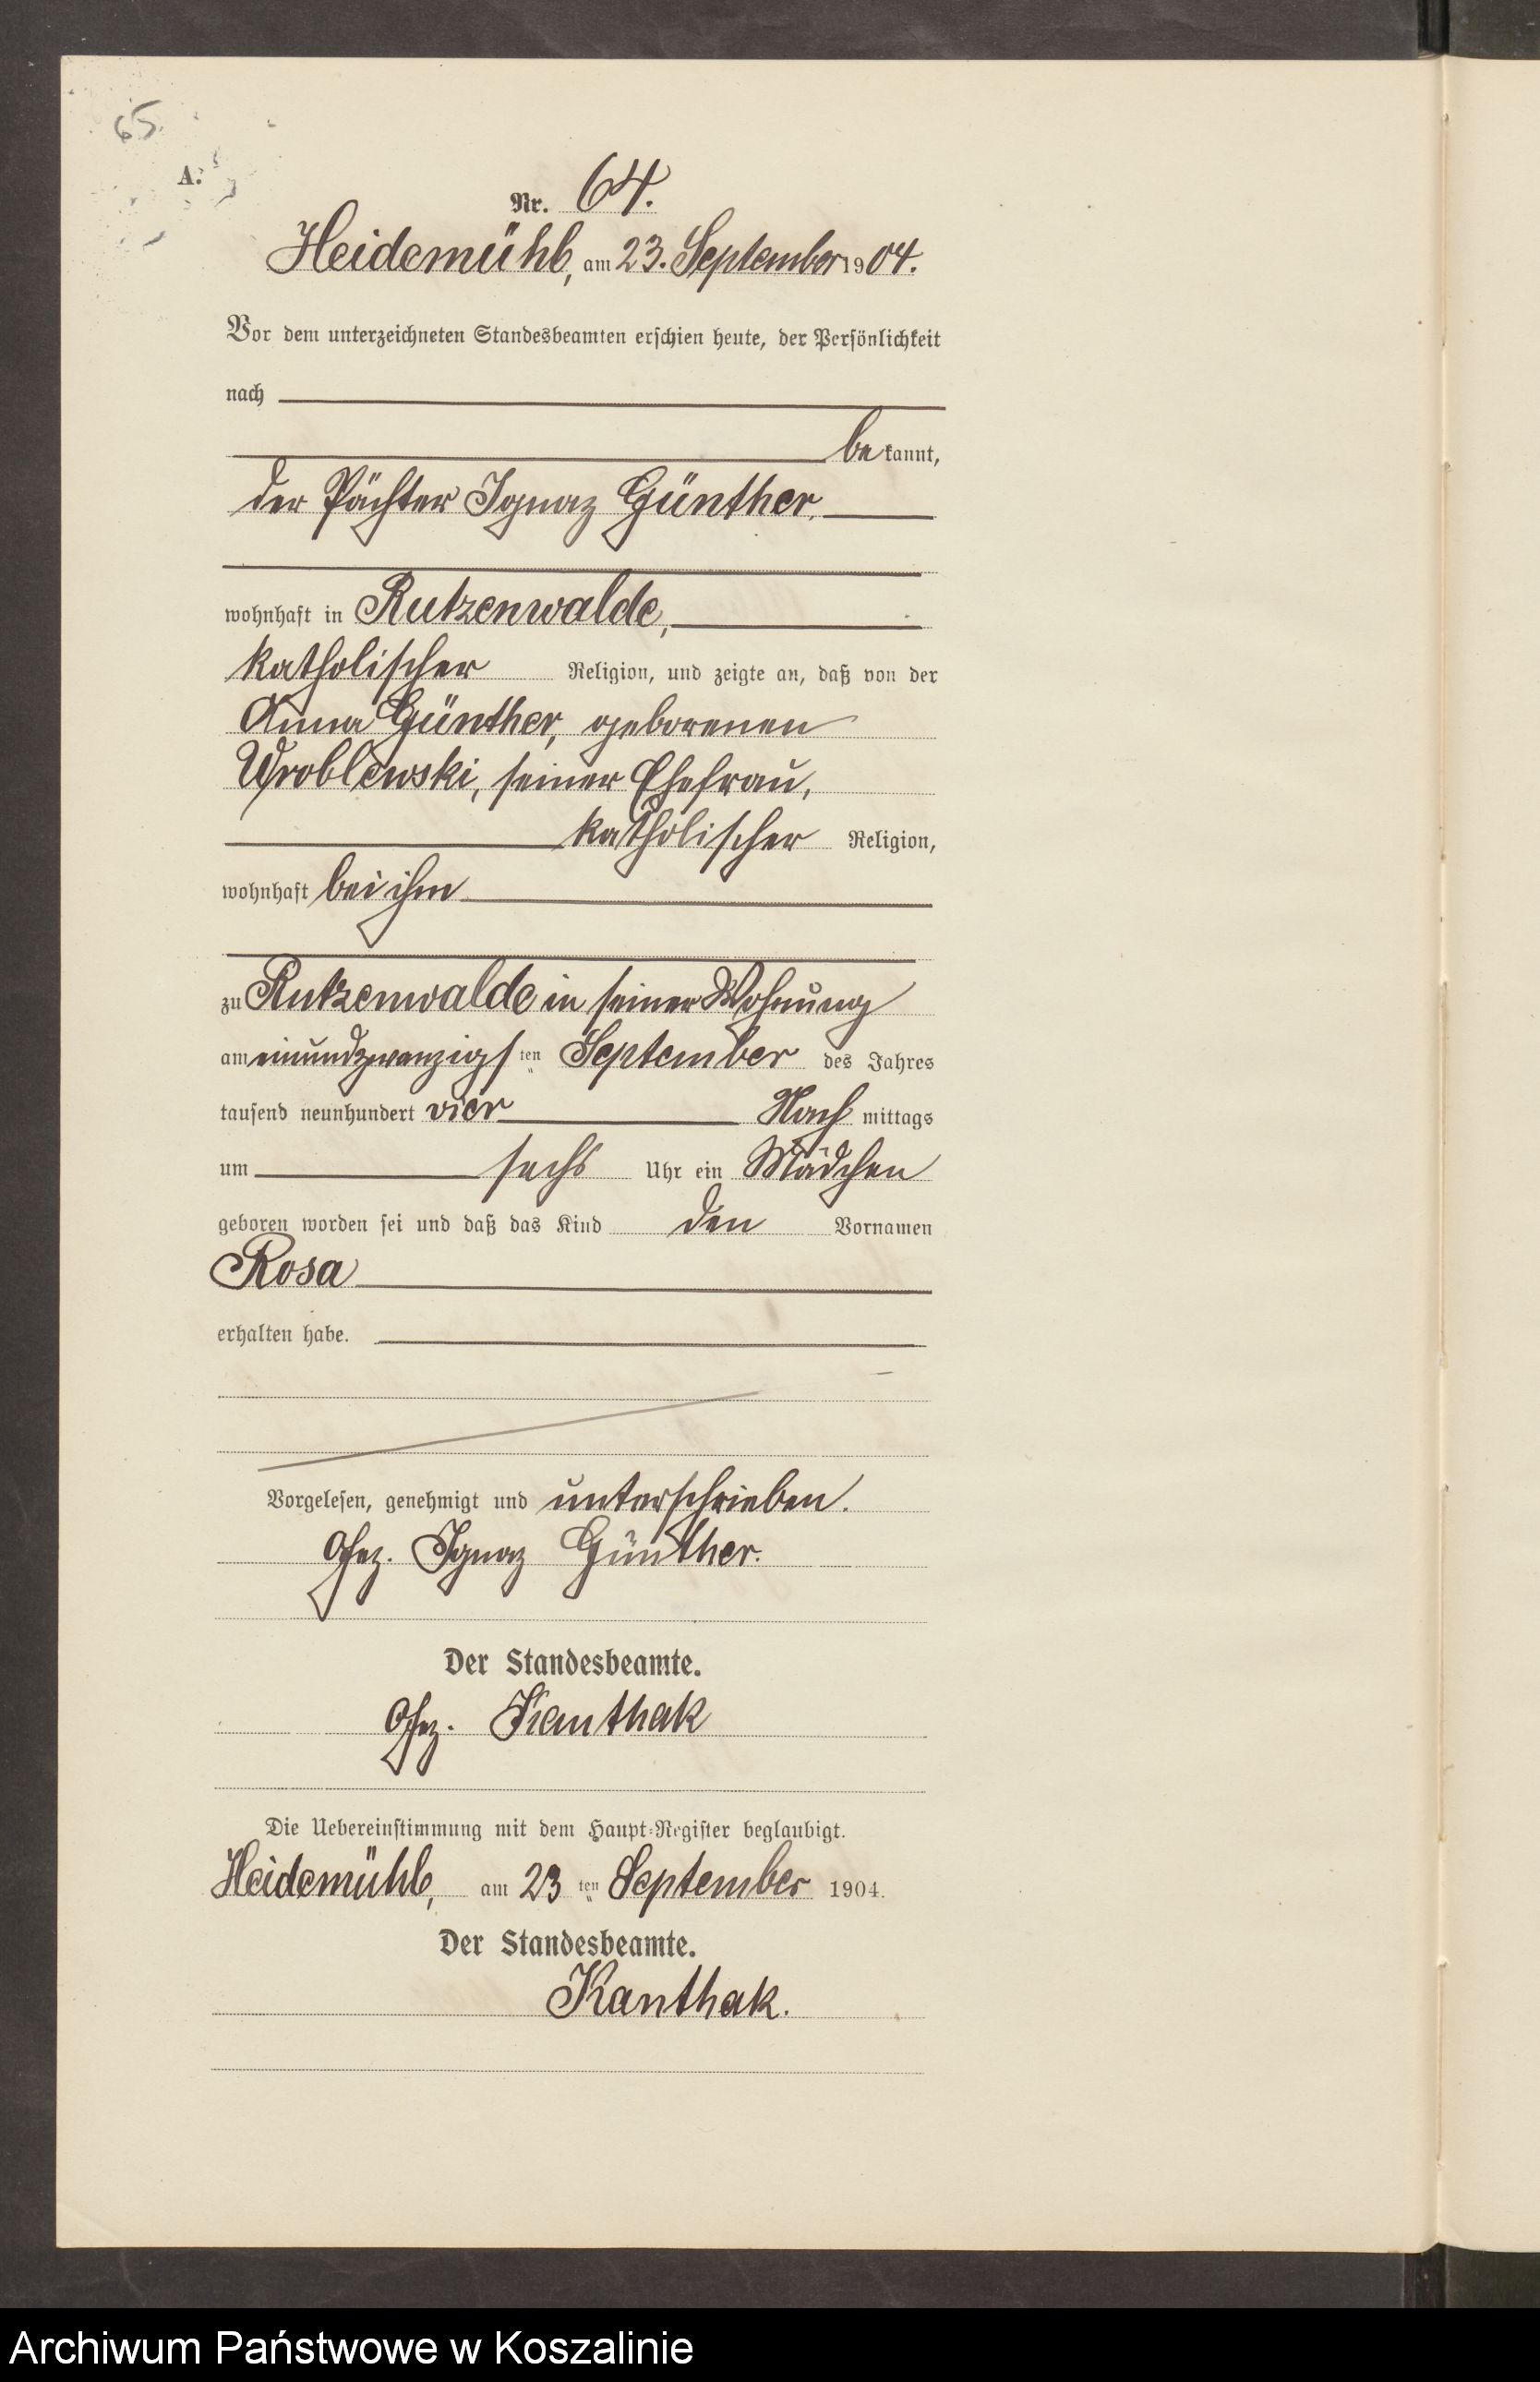 65.
A.
Nr. 64.
Heidemühl, am 23. September 1904.
Vor dem unterzeichneten Standesbeamten erschien heute, der Persönlichkeit
nach
bekannt,
der Pächter Ignaz Günther,
wohnhaft in Rutzenwalde,
katholischer Religion, und zeigte an, daß von der
Anna Günther, geborenen
Wroblewski, seiner Ehefrau,
katholischer Religion,
wohnhaft bei ihm
zu Rutzenwalde in seiner Wohnung
am einundzwanzigsten September des Jahres
tausend neunhundert vier Nachmittags
um sechs Uhr ein Mädchen
geboren worden sei und daß das Kind den Vornamen
Rosa
erhalten habe.
Vorgelesen, genehmigt und unterschrieben.
Gez. Ignaz Günther.
Der Standesbeamte.
Gez. Kanthak
Die Uebereinstimmung mit dem Haupt-Register beglaubigt.
Heidemühl, am 23ten September 1904.
Der Standesbeamte.
Kanthak.
Archiwum Państwowe w Koszalinie